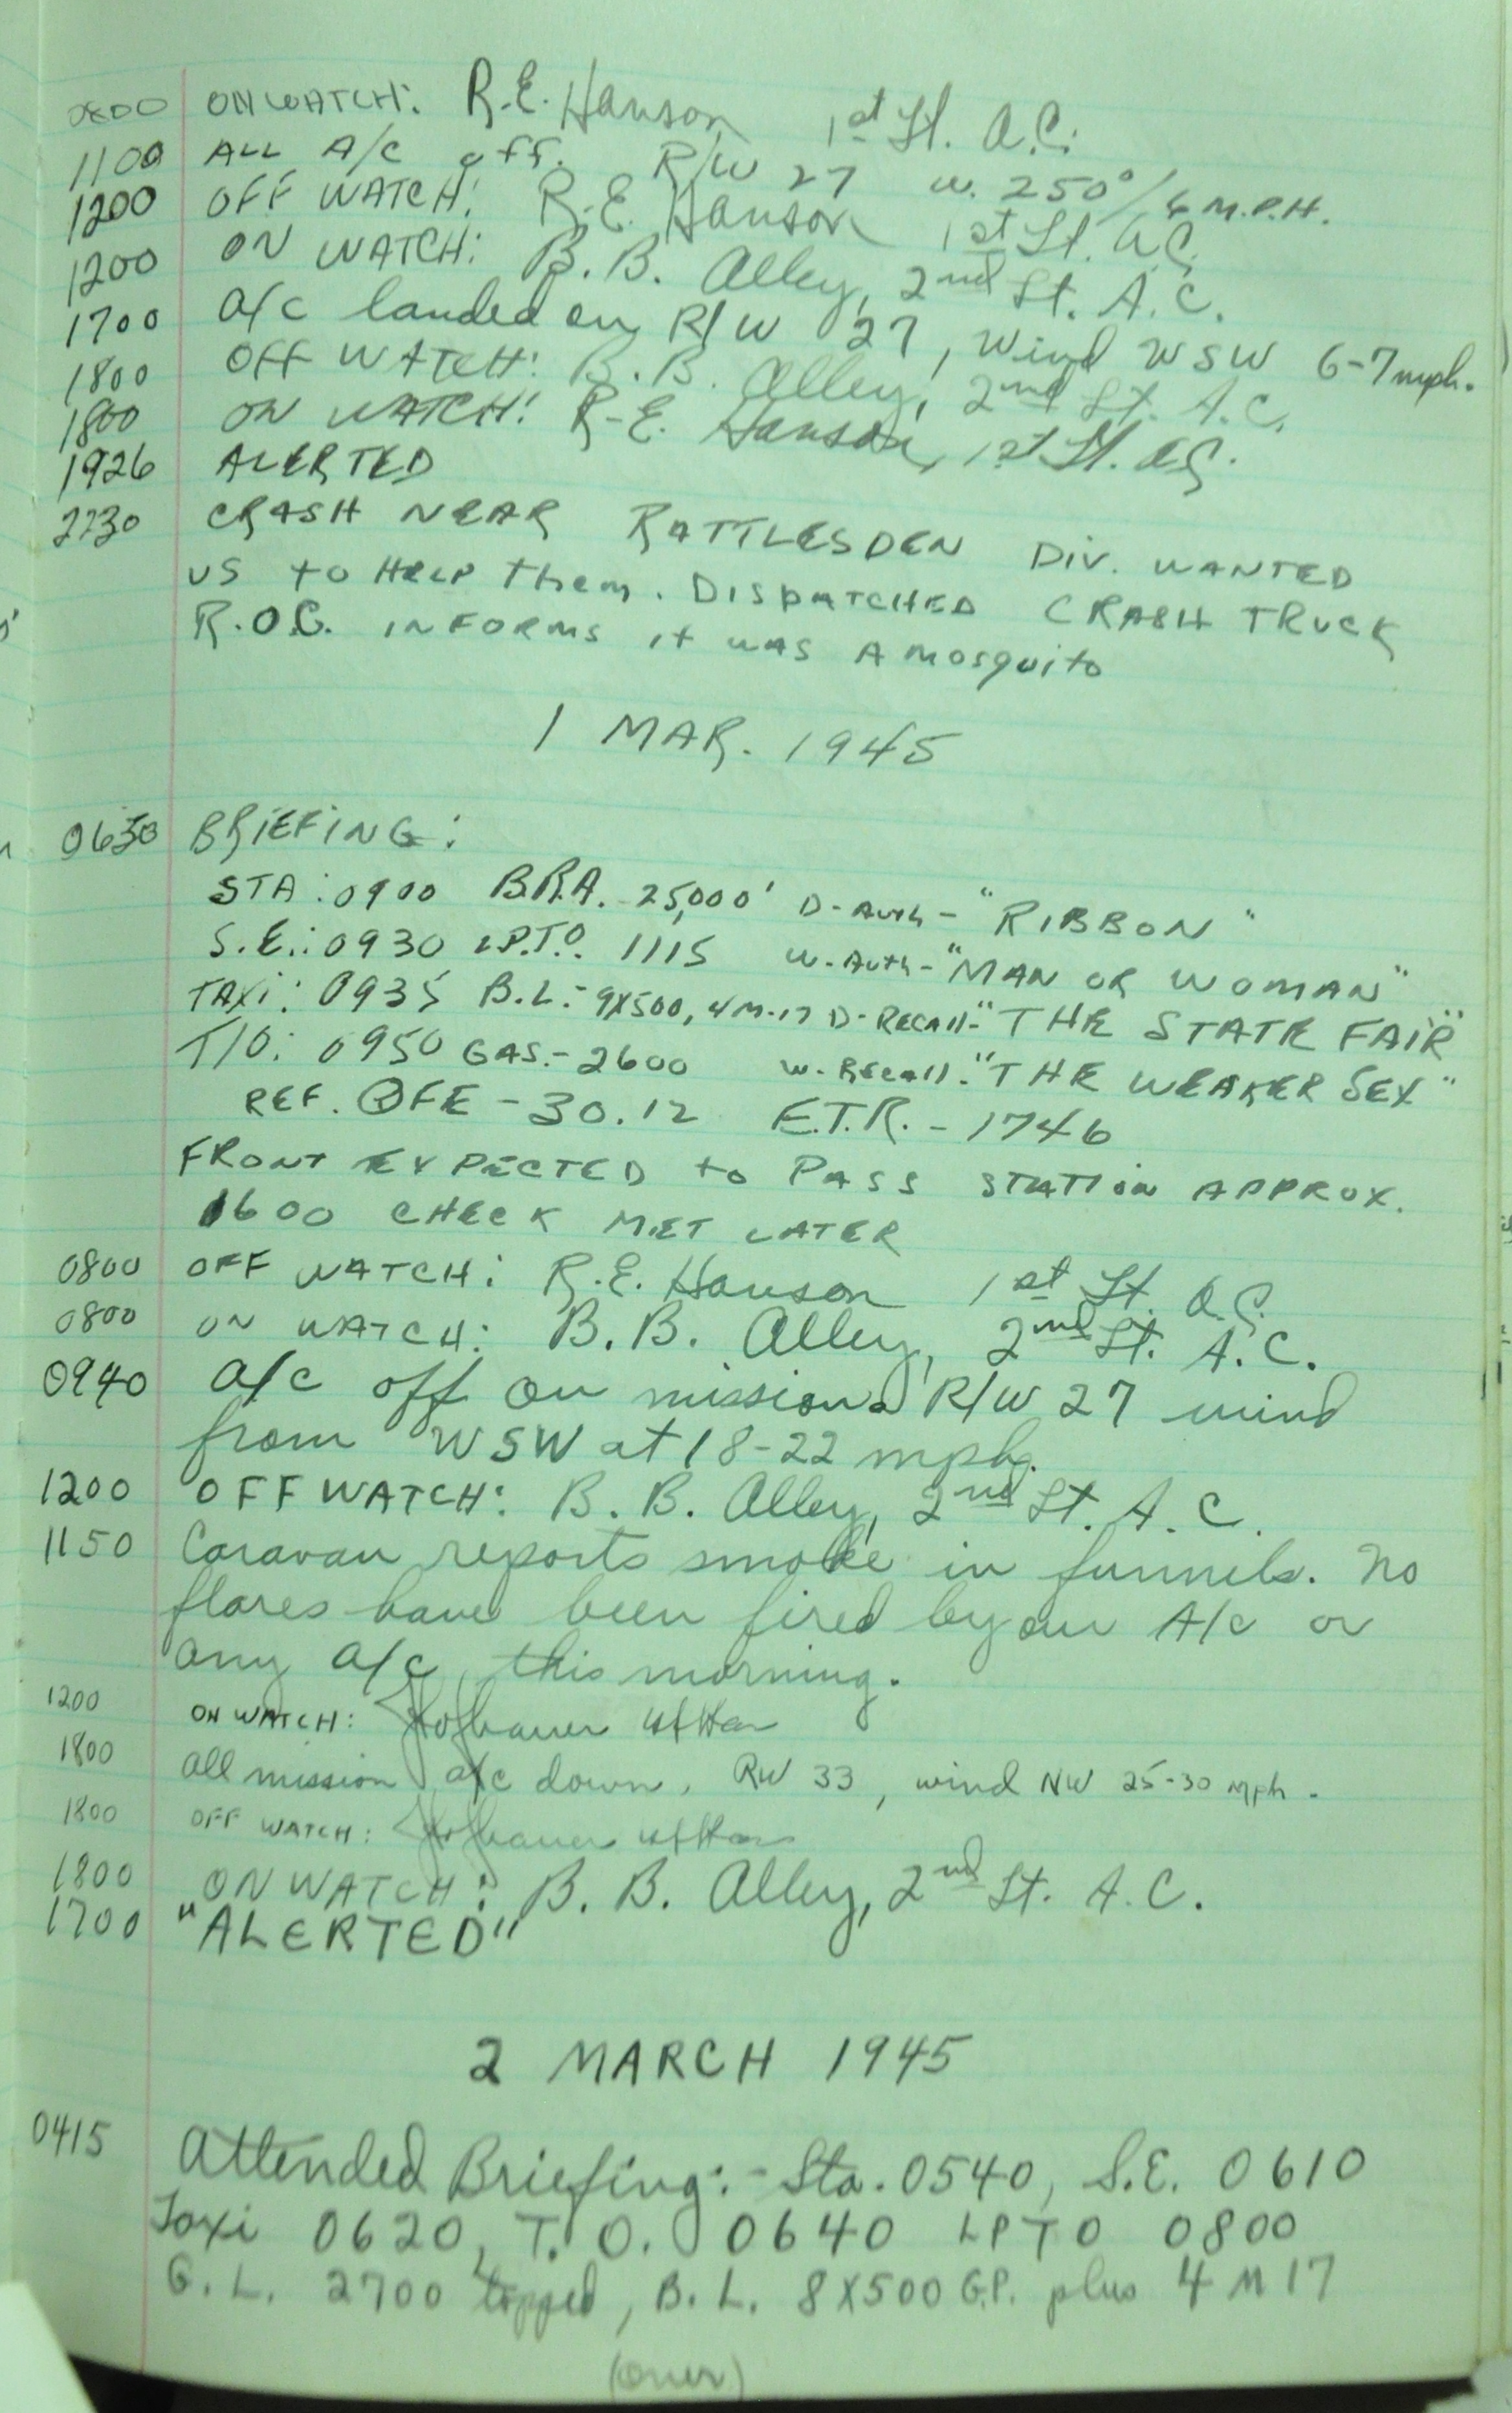 0800 ON WATCH: R.E. Hanson 1st Lt. A.C.
1100 ALL A/C off. R/W 27 W. 250°/6 M.P.H.
1200 OFF WATCH: R.E. Hanson 1st Lt. A.C.
1200 ON WATCH: B. B. Alley, 2nd Lt. A.C.
1700 A/c landed on R/W 27, wind WSW 6-7 mph.
1800 OFF WATCH: B. B. Alley, 2nd Lt. A.C.
1800 ON WATCH: R.E. Hanson, 1st Lt. AC.
1926 ALERTED
2230 CRASH NEAR RATTLESDEN DIV. WANTED
US to HELP them. DISPATCHED CRASH TRUCK
R.O.C. INFORMS it WAS A mosquito
1 MAR. 1945
0630 BRIEFING:
STA: 0900 B.R.A. - 25,000' D-Auth - "RIBBON"
S.E.: 0930 L.P.T.O. 1115 W-Auth - "MAN OR WOMAN"
TAXI: 0935 B.L.- 9X500, 4 M-17 D-RECAll- "THE STATE FAIR"
T/O: 0950 GAS.- 2600 W-RECAll - "THE WEAKER SEX"
REF. QFE - 30.12 E.T.R. - 1746
FRONT EXPECTED to PASS STATION APPROX.
1600 CHECK MET LATER
0800 OFF WATCH: R.E. Hanson 1st Lt. A.C.
0800 ON WATCH: B. B. Alley, 2nd Lt. A.C.
0940 A/c off on mission R/W 27 wind
from WSW at 18-22 mph.
1200 OFF WATCH: B. B. Alley, 2nd Lt. A.C.
1150 Caravan reports smoke in funnels. No
flares have been fired by our A/c or
any A/c this morning.
1200 ON WATCH:
1800 All mission a/c down. RW 33, wind NW 25-30 mph.
1800 OFF WATCH:
1800 ON WATCH: B. B. Alley, 2nd Lt. A.C.
1700 "ALERTED"
2 MARCH 1945
0415 Attended Briefing:- Sta. 0540, S.E. 0610
Taxi 0620, T.O. 0640 LPTO 0800
G.L. 2700 topped, B.L. 8X500 G.P. plus 4 M17
(over)